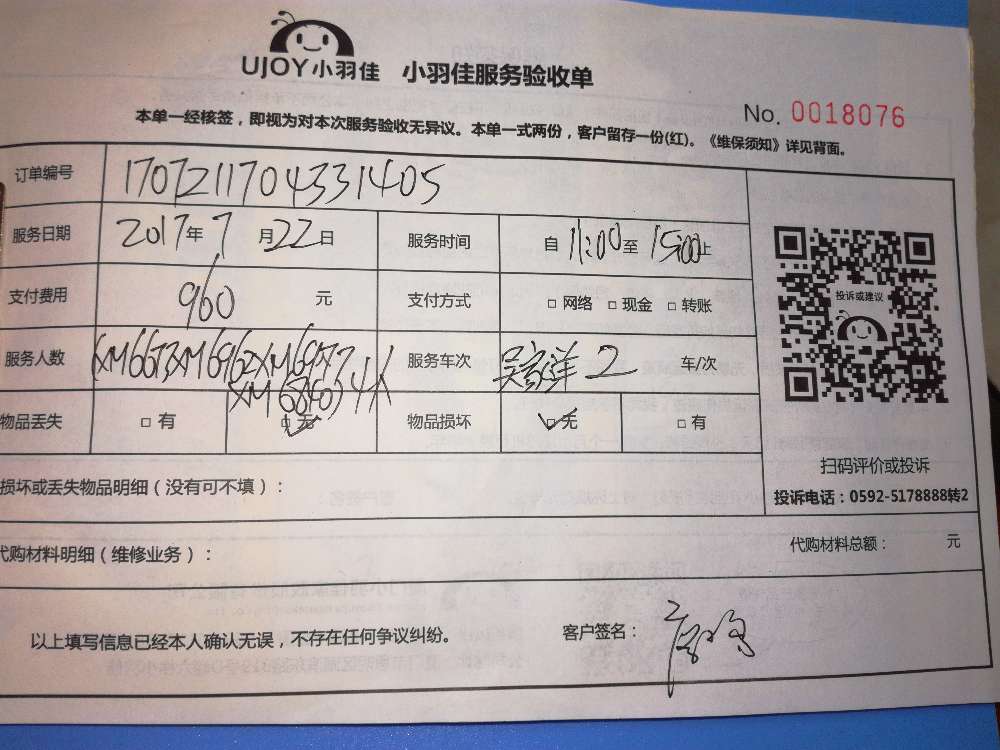 UJOY小羽佳 小羽佳服务验收单
No. 0018076
本单一经核签，即视为对本次服务验收无异议。本单一式两份，客户留存一份(红)。《维保须知》详见背面。
订单编号 170721170433 1405
服务日期 2017年7月22日 服务时间 自 11:00至 15:00止
支付费用 960 元 支付方式 □ 网络 □ 现金 □ 转账
服务人数 4人 服务车次 2 车/次
物品丢失 □ 有 □ 无 物品损坏 □ 无 □ 有
投诉或建议
扫码评价或投诉
损坏或丢失物品明细（没有可不填）：
投诉电话：0592-5178888转2
代购材料明细（维修业务）： 代购材料总额： 元
以上填写信息已经本人确认无误，不存在任何争议纠纷。 客户签名：